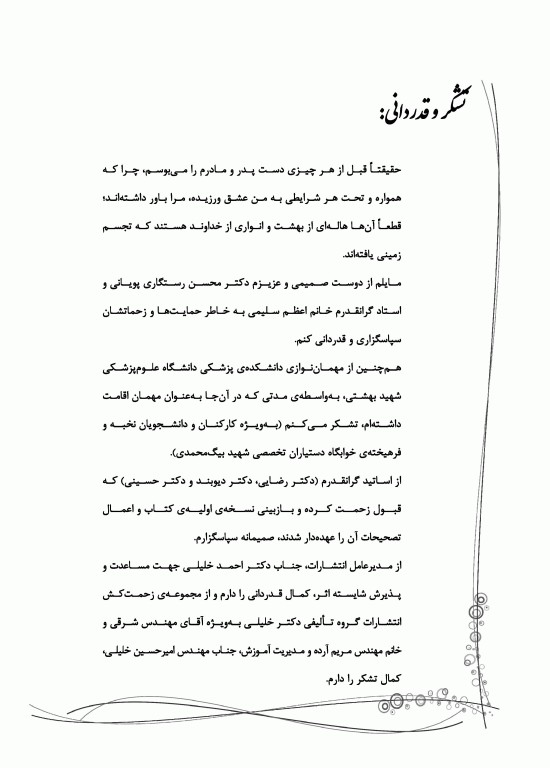 تشکر و قدردانی:
حقیقتاً قبل از هر چیزی دست پدر و مادرم را می‌بوسم، چرا که
همواره و تحت هر شرایطی به من عشق ورزیده، مرا باور داشته‌اند؛
قطعاً آن‌ها هاله‌ای از بهشت و انواری از خداوند هستند که تجسم
زمینی یافته‌اند.
مایلم از دوست صمیمی و عزیزم دکتر محسن رستگاری پویانی و
استاد گرانقدرم خانم اعظم سلیمی به خاطر حمایت‌ها و زحماتشان
سپاسگزاری و قدردانی کنم.
هم‌چنین از مهمان‌نوازی دانشکده‌ی پزشکی دانشگاه علوم‌پزشکی
شهید بهشتی، به‌واسطه‌ی مدتی که در آن‌جا به‌عنوان مهمان اقامت
داشته‌ام، تشکر می‌کنم (به‌ویژه کارکنان و دانشجویان نخبه و
فرهیخته‌ی خوابگاه دستیاران تخصصی شهید بیگ‌محمدی).
از اساتید گرانقدرم (دکتر رضایی، دکتر دیوبند و دکتر حسینی) که
قبول زحمت کرده و بازبینی نسخه‌ی اولیه‌ی کتاب و اعمال
تصحیحات آن را عهده‌دار شدند، صمیمانه سپاسگزارم.
از مدیرعامل انتشارات، جناب دکتر احمد خلیلی جهت مساعدت و
پذیرش شایسته اثر، کمال قدردانی را دارم و از مجموعه‌ی زحمت‌کش
انتشارات گروه تألیفی دکتر خلیلی به‌ویژه آقای مهندس شرقی و
خانم مهندس مریم آرده و مدیریت آموزش، جناب مهندس امیرحسین خلیلی،
کمال تشکر را دارم.